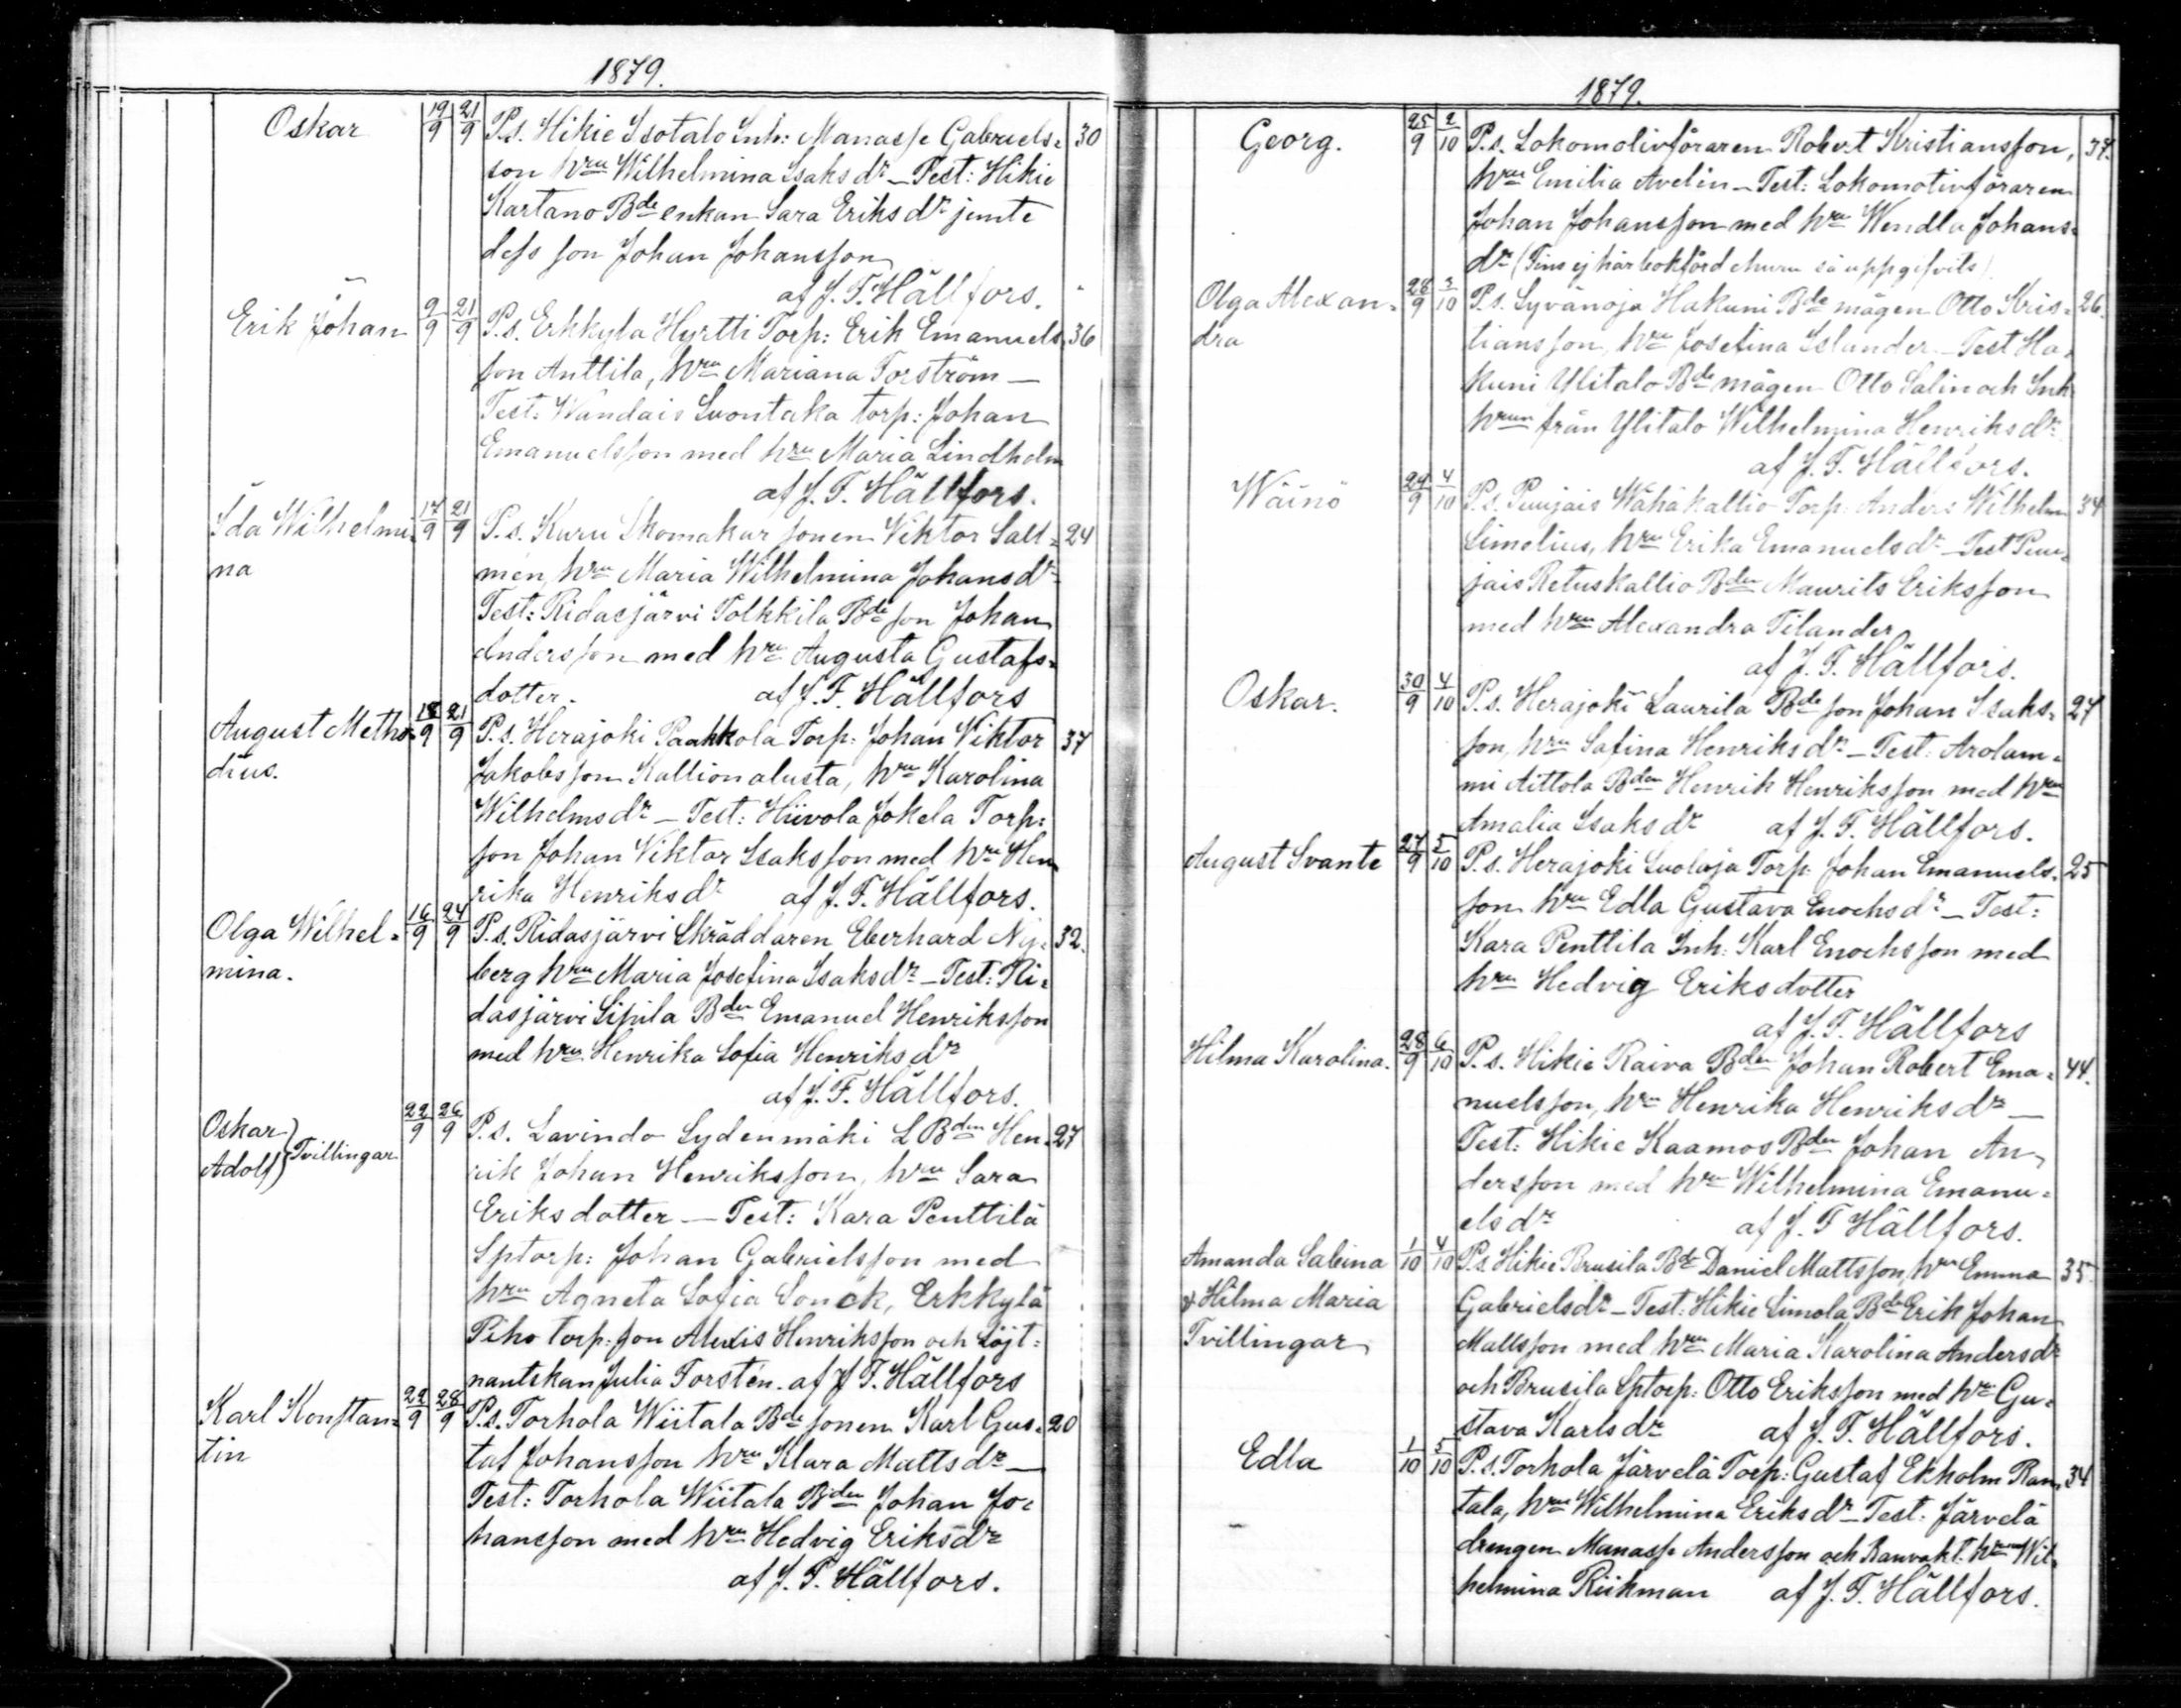 1879.
Oskar 19/9 21/9 P.s. Hikie Isotalo Inh: Manasse Gabriels= 30
son hru Wilhelmina Isaksdr – Test: Hikie
Kartano Bde enkan Sara Eriksdr jemte
dess son Johan Johansson
af J. F. Hällfors.
Erik Johan 9/9 21/9 P.s. Erkkyla Hyrtti Torp: Erik Emanuels 36
son Anttila, hru Mariana Forström –
Test: Wandais Luontaka torp: Johan
Emanuelsson med hru Maria Lindholm
af J. F. Hällfors.
Ida Wilhelmi= 17/9 21/9 P.s. Kuru Skomakar sonen Viktor Salt= 24
na mén, hru Maria Wilhelmina Johansdr
Test: Ridasjärvi Tolkkila Bde son Johan
Andersson med hru Augusta Gustafs=
dotter. af J. F. Hällfors
August Metho= 18/9 21/9 P.s. Herajoki Paahkola Torp: Johan Viktor 37
dius. Jakobsson Kallionalusta, hru Karolina
Wilhelmsdr – Test: Hiivola Jokela Torp:
son Johan Viktor Isaksson med hru Hen
rika Henriksdr af J. F. Hällfors.
Olga Wilhel= 16/9 24/9 P.s. Ridasjärvi Skräddaren Eberhard Ny= 32.
mina. berg hru Maria Josefina Isaksdr – Test: Ri=
dasjärvi Sipila Bden Emanuel Henriksson
med hru Henrika Sofia Henriksdr
af J. F. Hällfors.
Oskar 22/9 26/9 P.s. Lavindo Sydenmäki L Bden Hen= 27
Adolf Tvillingar rik Johan Henriksson, hru Sara
Eriksdotter – Test: Kara Penttilä
Sptorp: Johan Gabrielsson med
hru Agneta Sofia Sonck, Erkkylä
Piho torp: son Alexis Henriksson och Löjt=
nantskan Julia Forstén. af J. F. Hällfors
Karl Konstan= 22/9 28/9 P.s. Torhola Wiitala Bde sonen Karl Gus= 20
tin taf Johansson hru Klara Mattsdr –
Test: Torhola Wiitala Bden Johan Jo=
hansson med hru Hedvig Eriksdr
af J. F. Hällfors.
1879.
Georg. 25/9 2/10 P.s. Lokomotivföraren Robert Kristiansson, 37.
hru Emilia Avelin – Test: Lokomotivföraren
Johan Johansson med hru Wendla Johans=
dr (Fins ej här bokförd ehuru så uppgifvits)
Olga Alexan= 28/9 3/10 P.s. Syvänoja Hakuni Bde mågen Otto Kris= 26.
dra tiansson, hru Josefina Selander – Test Ha=
kuni Ylitalo Bde mågen Otto Salin och Inh
hrun från Ylitalo Wilhelmina Henriksdr
af J. F. Hällfors.
Wäinö 29/9 4/10 P.s. Puujais Wähäkallio Torp: Anders Wilhelm 34
Simelius, hru Erika Emanuelsdr – Test Puu=
jais Retuskallio Bden Maurits Eriksson
med hru Alexandra Tilander
af J. F. Hällfors.
Oskar. 30/9 4/10 P.s. Herajoki Laurila Bde son Johan Isaks= 27
son, hru Safina Henriksdr – Test: Arolam=
mi Aittola Bden Henrik Henriksson med hru
Amalia Isaksdr af J. F. Hällfors.
August Svante 27/9 5/10 P.s. Herajoki Luoloja Torp: Johan Emanuels= 25
son hru Edla Gustava Enochsdr – Test:
Kara Penttila Inh: Karl Enochsson med
hru Hedvig Eriksdotter
af J. F. Hällfors
Hilma Karolina. 28/9 6/10 P.s. Hikie Raiva Bden Johan Robert Ema= 44.
nuelsson, hru Henrika Henriksdr –
Test: Hikie Kaamos Bden Johan An=
dersson med hru Wilhelmina Emanu=
elsdr af J. F Hällfors.
Amanda Sabina 1/10 4/10 P.s. Hikie Brusila Bde Daniel Mattsson, hru Emma 35.
& Hilma Maria Gabrielsdr – Test: Hikie Simola Bde Erik Johan
Tvillingar Mattsson med hru Maria Karolina Andersdr
och Brusila Sptorp: Otto Eriksson med hru Gu=
stava Karlsdr af J. F. Hällfors.
Edla 1/10 5/10 P.s. Torhola Järvelä Torp: Gustaf Ekholm Ran= 34
tala, hru Wilhelmina Eriksdr – Test: Järvelä
drengen Manasse Andersson och Banvakt. hrun Wil=
helmina Riikman af J. F. Hällfors.